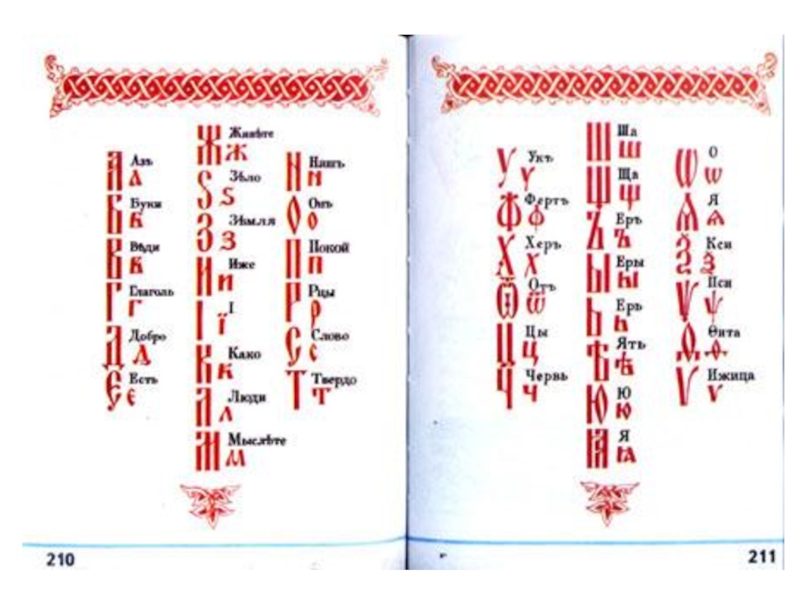 Азъ
А а
Буки
Б б
Вѣди
В в
Глаголь
Г г
Добро
Д д
Есть
Є є
Живѣте
Ж ж
Зѣло
Ѕ ѕ
Зѣмля
З з
Иже
И и
І
І ї
Како
К к
Люди
Л л
Мыслѣте
М м
Нашъ
Н н
Онъ
О о
Покой
П п
Рцы
Р р
Слово
С с
Твердо
Т т
210
Укъ
У у
Фертъ
Ф ф
Херъ
Х х
Отъ
Ѿ ѿ
Цы
Ц ц
Червь
Ч ч
Ша
Ш ш
Ща
Щ щ
Еръ
Ъ ъ
Еры
Ы ы
Ерь
Ь ь
Ять
Ѣ ѣ
Ю
Ю ю
Я
Ꙗ ꙗ
О
Ѡ ѡ
Я
Ѧ ѧ
Кси
Ѯ ѯ
Пси
Ѱ ѱ
Ѳита
Ѳ ѳ
Ижица
Ѵ ѵ
211